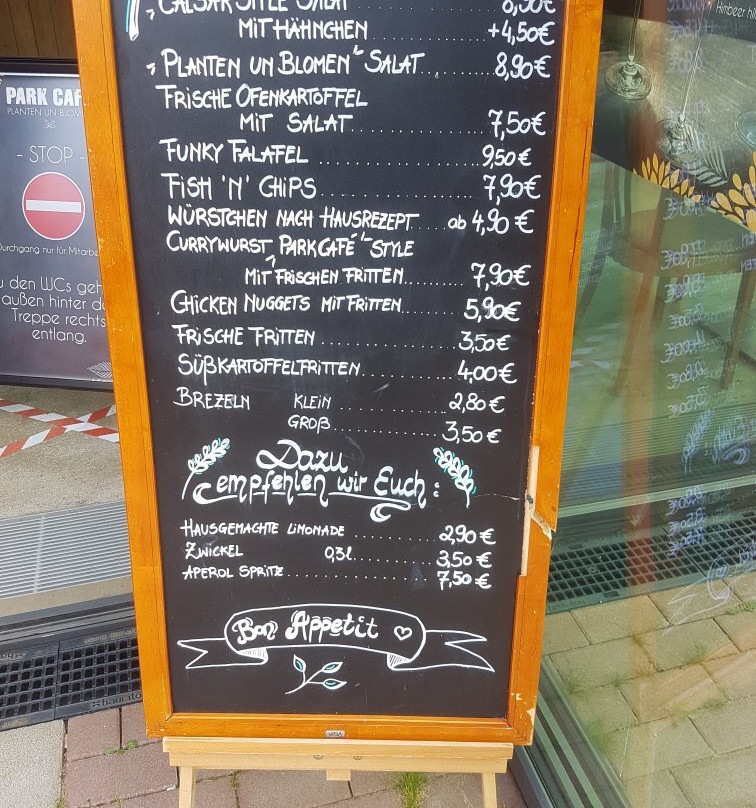 "CAESAR STYLE" SALAT 8,50€
MIT HÄHNCHEN +4,50€
"PLANTEN UN BLOMEN" SALAT 8,90€
FRISCHE OFENKARTOFFEL
MIT SALAT 7,50€
FUNKY FALAFEL 9,50€
FISH 'N' CHIPS 7,90€
WÜRSTCHEN NACH HAUSREZEPT ab 4,90€
CURRYWURST "PARKCAFÉ"-STYLE
MIT FRISCHEN FRITTEN 7,90€
CHICKEN NUGGETS MIT FRITTEN 5,90€
FRISCHE FRITTEN 3,50€
SÜßKARTOFFELFRITTEN 4,00€
BREZELN KLEIN 2,80€
GROß 3,50€
Dazu
empfehlen wir Euch:
HAUSGEMACHTE LIMONADE 2,90€
ZWICKEL 0,3l 3,50€
APEROL SPRITZ 7,50€
Bon Appetit
PARK CAF
PLANTEN UN BLOM
- STOP -
Durchgang nur für Mitarbe
u den WCs geh
außen hinter d
Treppe rechts
entlang.
Himbeer